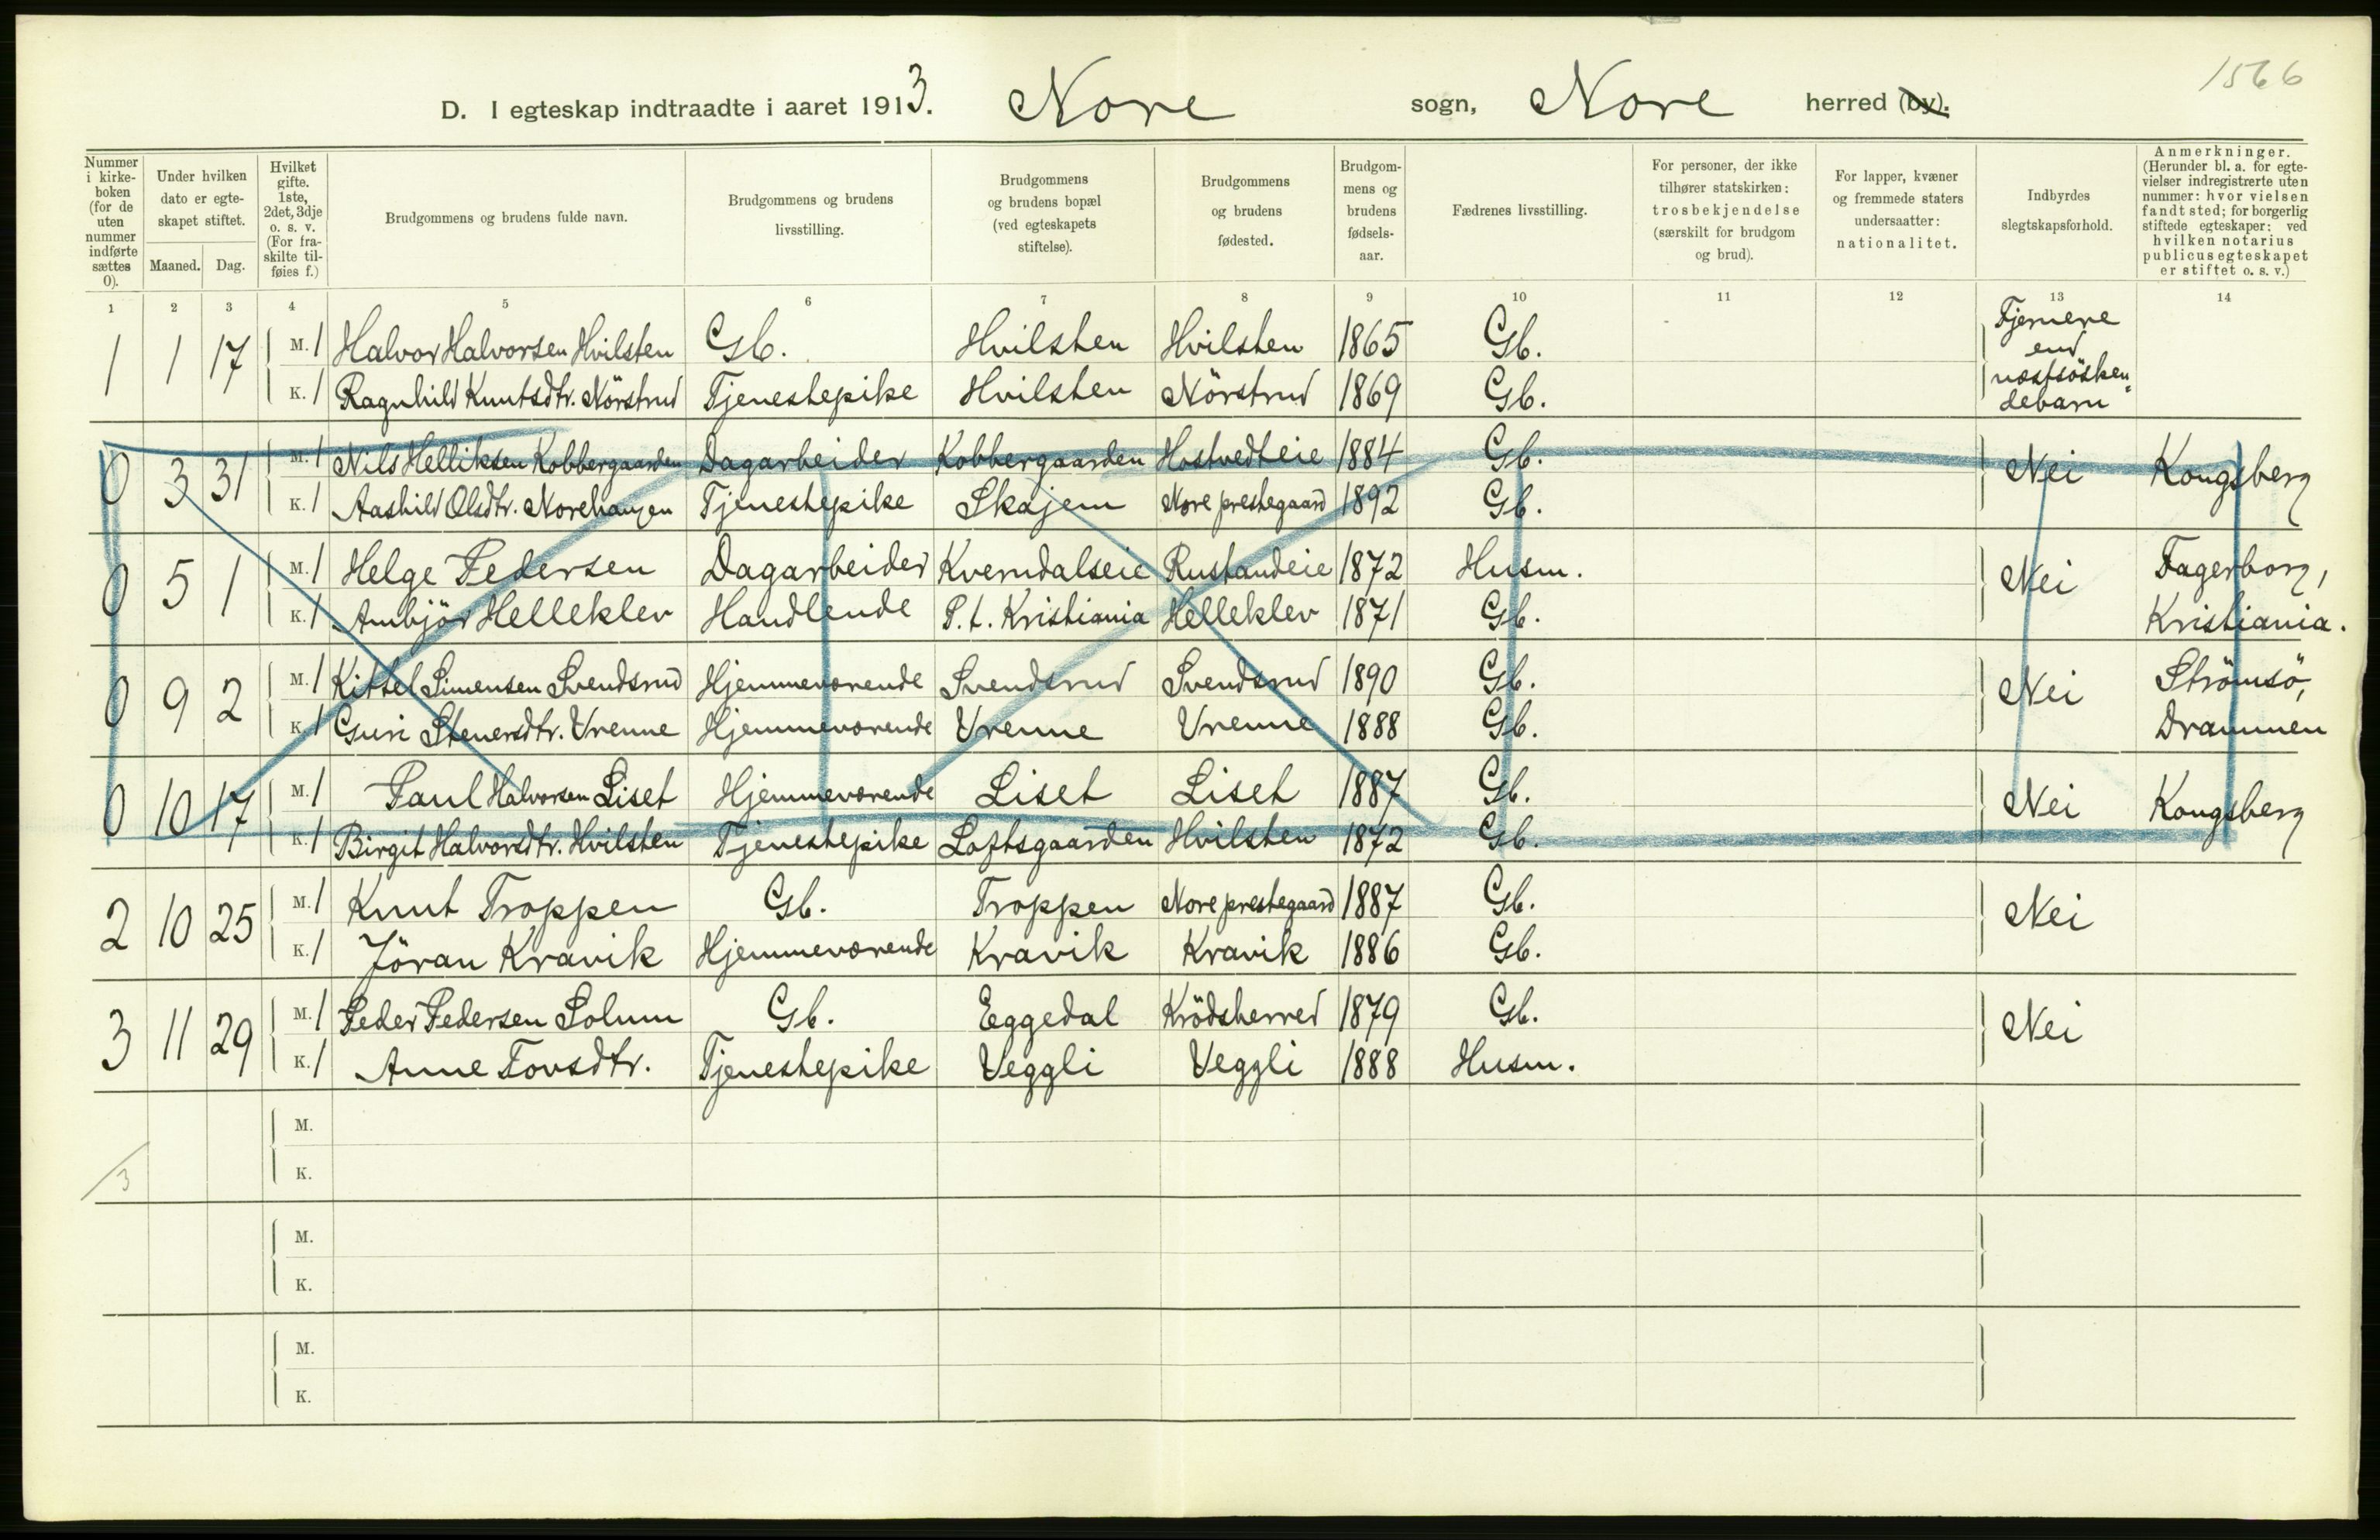 1566
D. I egteskap indtraadte i aaret 1913. Nore sogn, Nore herred (by).
Nummer i kirke-boken (for de uten nummer indførte sættes 0). | Under hvilken dato er egte-skapet stiftet. Maaned. Dag. | Hvilket gifte. 1ste, 2det, 3dje o. s. v. (For fra-skilte til-føies f.) | Brudgommens og brudens fulde navn. | Brudgommens og brudens livsstilling. | Brudgommens og brudens bopæl (ved egteskapets stiftelse). | Brudgommens og brudens fødested. | Brudgom-mens og brudens fødsels-aar. | Fædrenes livsstilling. | For personer, der ikke tilhører statskirken: trosbekjendelse (særskilt for brudgom og brud). | For lapper, kvæner og fremmede staters undersaatter: nationalitet. | Indbyrdes slegtskapsforhold. | Anmerkninger. (Herunder bl. a. for egte-vielser indregistrerte uten nummer: hvor vielsen fandt sted; for borgerlig stiftede egteskaper: ved hvilken notarius publicus egteskapet er stiftet o. s. v.)
1 2 3 4 5 6 7 8 9 10 11 12 13 14
1 1 17 M. 1 Halvor Halvorsen Hvilsten Gb. Hvilsten Hvilsten 1865 Gb. Fjernere end næstsösken-debarn
K. 1 Ragnhild Knutsdtr. Nörstrud Tjenestepike Hvilsten Nörstrud 1869 Gb.
0 3 31 M. 1 Nils Helliksen Kobbergaarden Dagarbeider Kobbergaarden Hostvedteie 1884 Gb. Nei Kongsberg
K. 1 Aashild Olsdtr. Norehaugen Tjenestepike Skajem Nore prestegaard 1892 Gb.
0 5 1 M. 1 Helge Pedersen Dagarbeider Kverndalseie Rustandeie 1872 Husm. Nei Fagerborg,
K. 1 Ambjör Helleklev Handlende P.t. Kristiania Helleklev 1871 Gb. Kristiania.
0 9 2 M. 1 Kittel Simensen Svendsrud Hjemmeværende Svendsrud Svendsrud 1890 Gb. Nei Strömsö,
K. 1 Guri Stenersdtr. Vrenne Hjemmeværende Vrenne Vrenne 1888 Gb. Drammen
0 10 17 M. 1 Paul Halvorsen Liset Hjemmeværende Liset Liset 1887 Gb. Nei Kongsberg
K. 1 Birgit Halvorsdtr. Hvilsten Tjenestepike Loftsgaarden Hvilsten 1872 Gb.
2 10 25 M. 1 Knut Troppen Gb. Troppen Nore prestegaard 1887 Gb. Nei
K. 1 Jöran Kravik Hjemmeværende Kravik Kravik 1886 Gb.
3 11 29 M. 1 Peder Pedersen Solum Gb. Eggedal Krödsherred 1879 Gb. Nei
K. 1 Anne Tovsdtr. Tjenestepike Veggli Veggli 1888 Husm.
M.
/3 K.
M.
K.
M.
K.